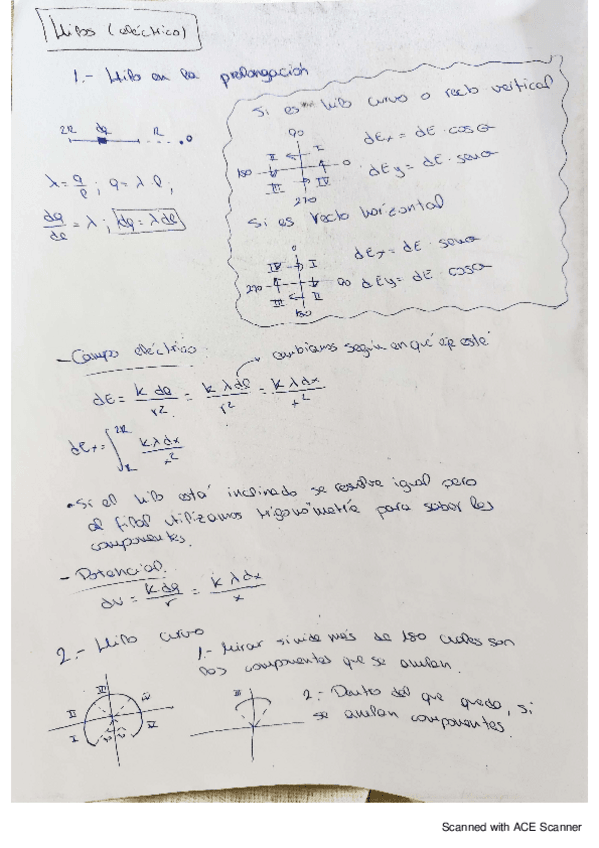 Hilos (eléctrico)
1.- Hilo en la prolongación
2R dq R 0
λ = q/l ; q = λ l ;
dq/dl = λ ; dq = λ dl
Si es un hilo curvo o recto vertical
90
II I
180 0
III IV
270
dEx = dE · cosα
dEy = dE · senα
Si es recto horizontal
0
IV I
270 90
III II
180
dEx = dE · senα
dEy = dE · cosα
- Campo eléctrico
cambiamos según en qué eje esté
dE = k dq / r² = k λ dl / r² = k λ dx / x²
dEx = ∫ 2R R k λ dx / x²
• Si el hilo está inclinado se resolve igual pero
al final utilizamos trigonometría para saber las
componentes.
- Potencial.
dV = k dq / r = k λ dx / x
2.- Hilo curvo
1.- Mirar si mide más de 180 cuales son
las componentes que se anulan.
III
II
I IV
2.- Dentro del que queda, si
se anulan componentes.
Scanned with ACE Scanner